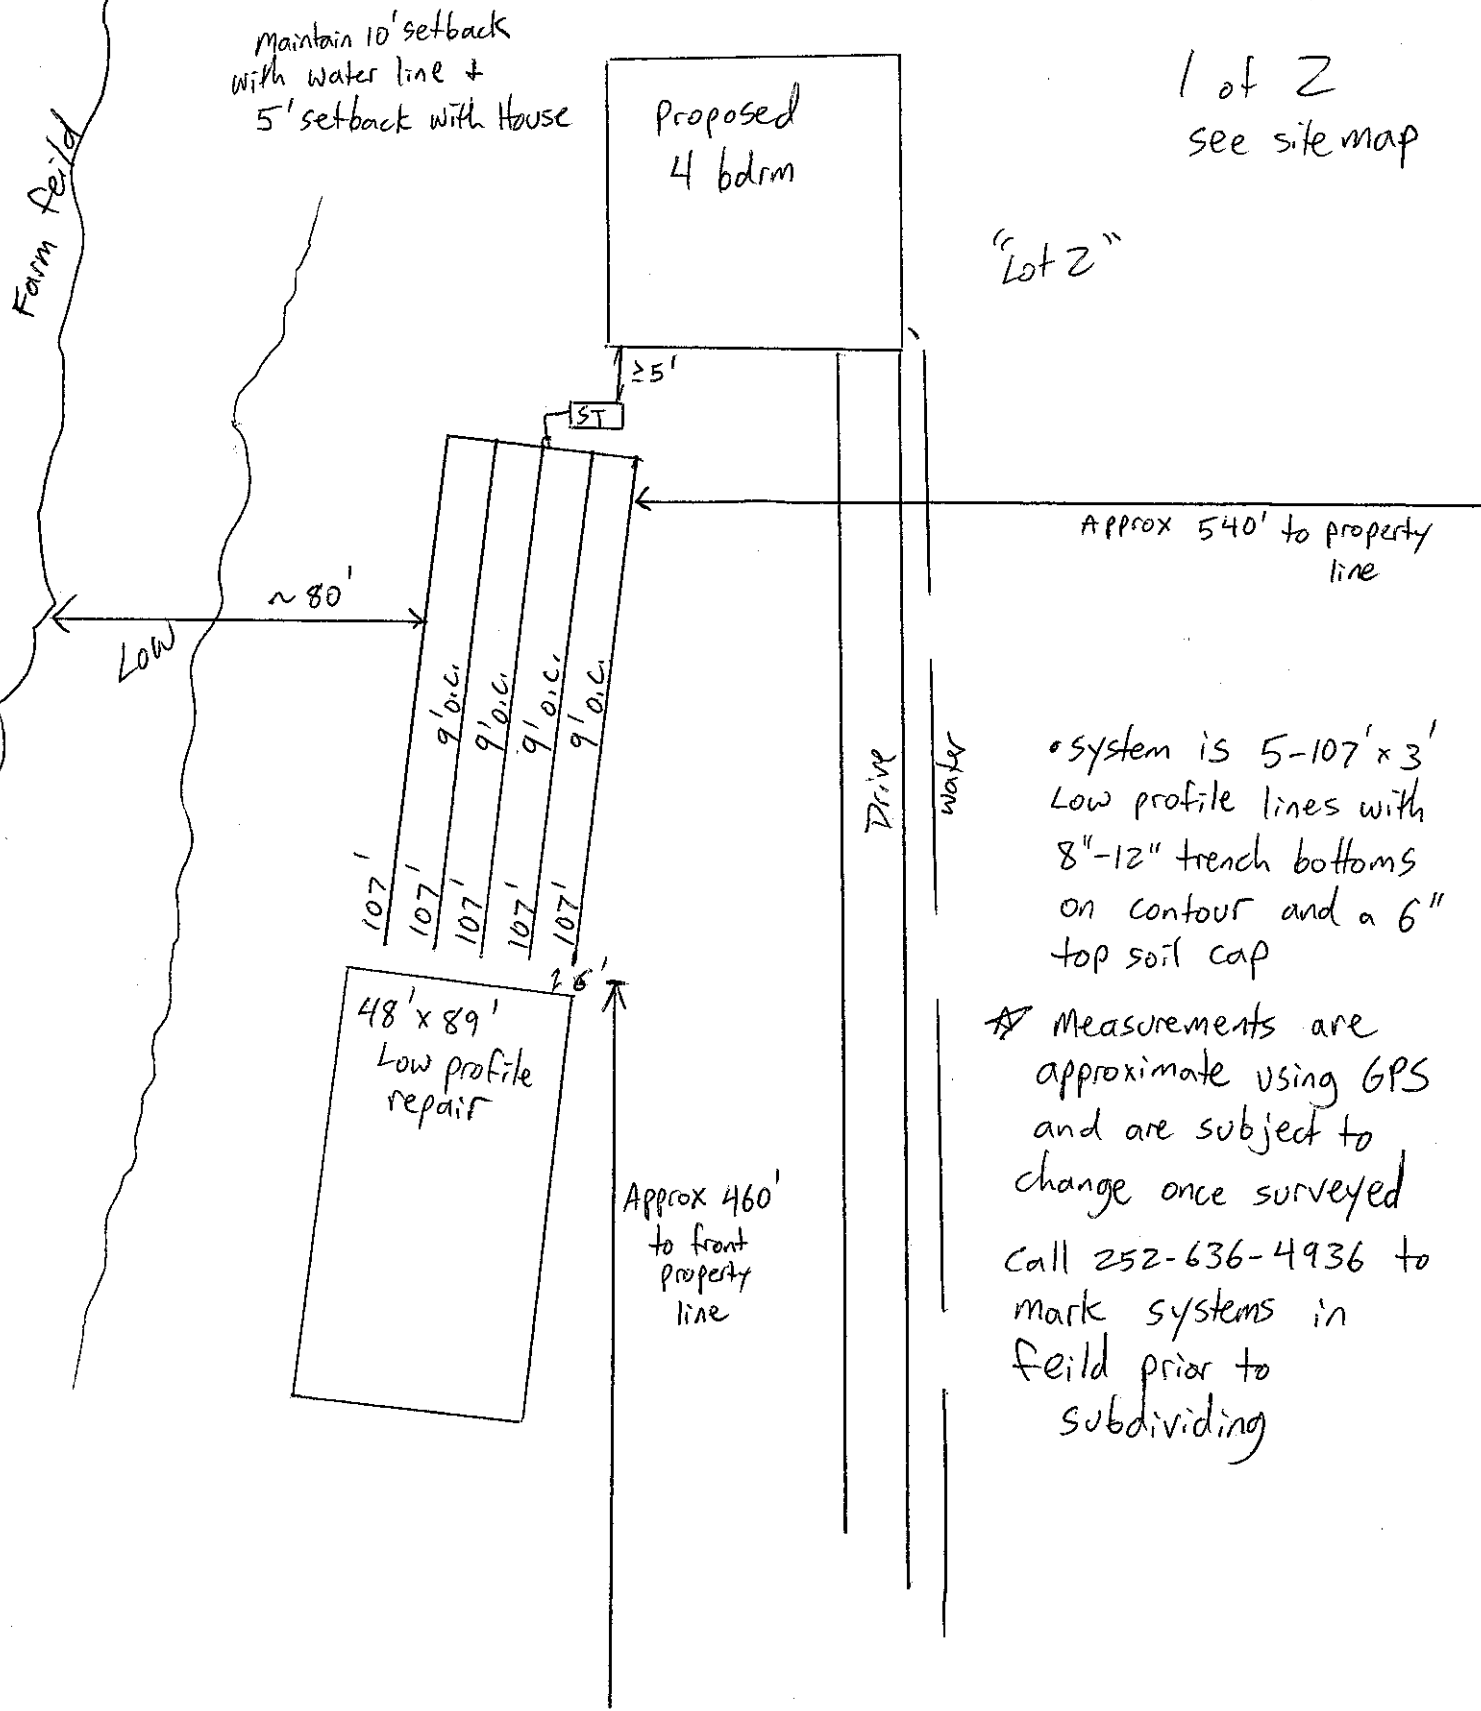 Maintain 10' setback
with water line +
5' setback with House
Proposed
4 bdrm
1 of 2
see site map
"Lot 2"
Farm feild
≥5'
ST
Approx 540' to property
line
~80'
Low
9' o.c.
9' o.c.
9' o.c.
9' o.c.
107'
107'
107'
107'
107'
Drive
water
•system is 5-107' x 3'
Low profile lines with
8"-12" trench bottoms
on contour and a 6"
top soil cap
48' x 89'
Low profile
repair
☆ Measurements are
approximate using GPS
and are subject to
change once surveyed
Call 252-636-4936 to
mark systems in
feild prior to
subdividing
Approx 460'
to front
property
line